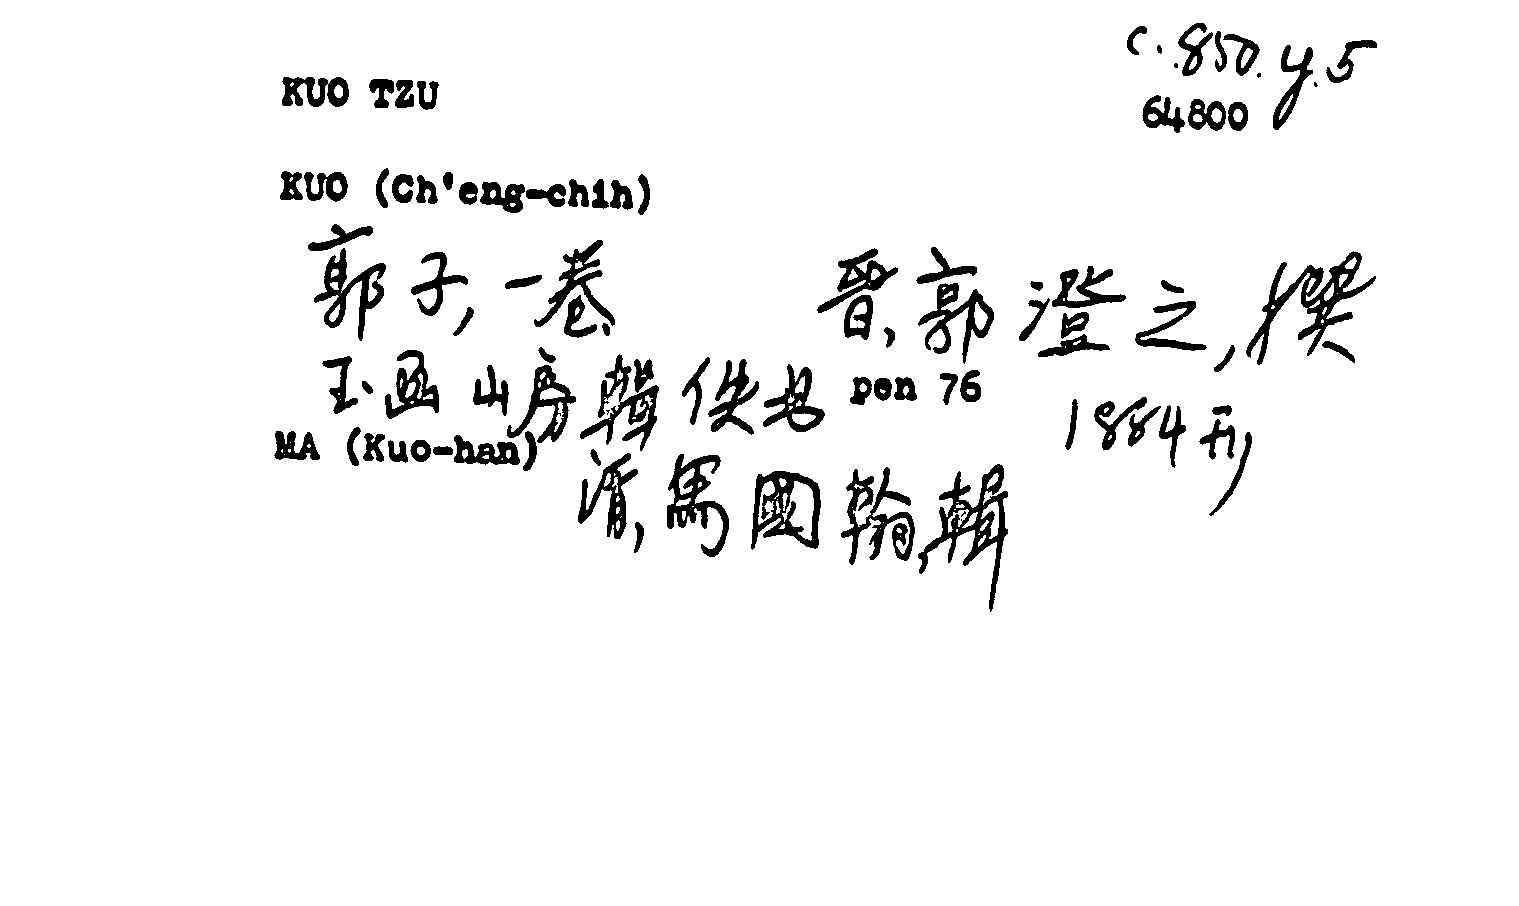 c.850.y.5
KUO TZU
64800
KUO (Ch'eng-chih)
郭子,一卷 晉,郭澄之,撰
玉函山房輯佚書 pen 76 1884刊
MA (Kuo-han)
清,馬國翰,輯